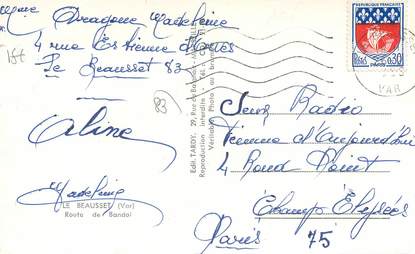 Mme Aragone Madeleine
4 rue Estienne d'Orves
Le Beausset 83
15f
83
Aline
Madeleine
LE BEAUSSET (Var)
Route de Bandol
Edit. TARDY, 29, Rue de Bandol
Reproduction interdite - Tél.
Véritable Photo au bromure
REPUBLIQUE FRANÇAISE
PARIS 0,30
POSTES
VAR
Jeux Radio
Femme d'Aujourd'hui
4 Rond Point
Champs Elysées
Paris 75